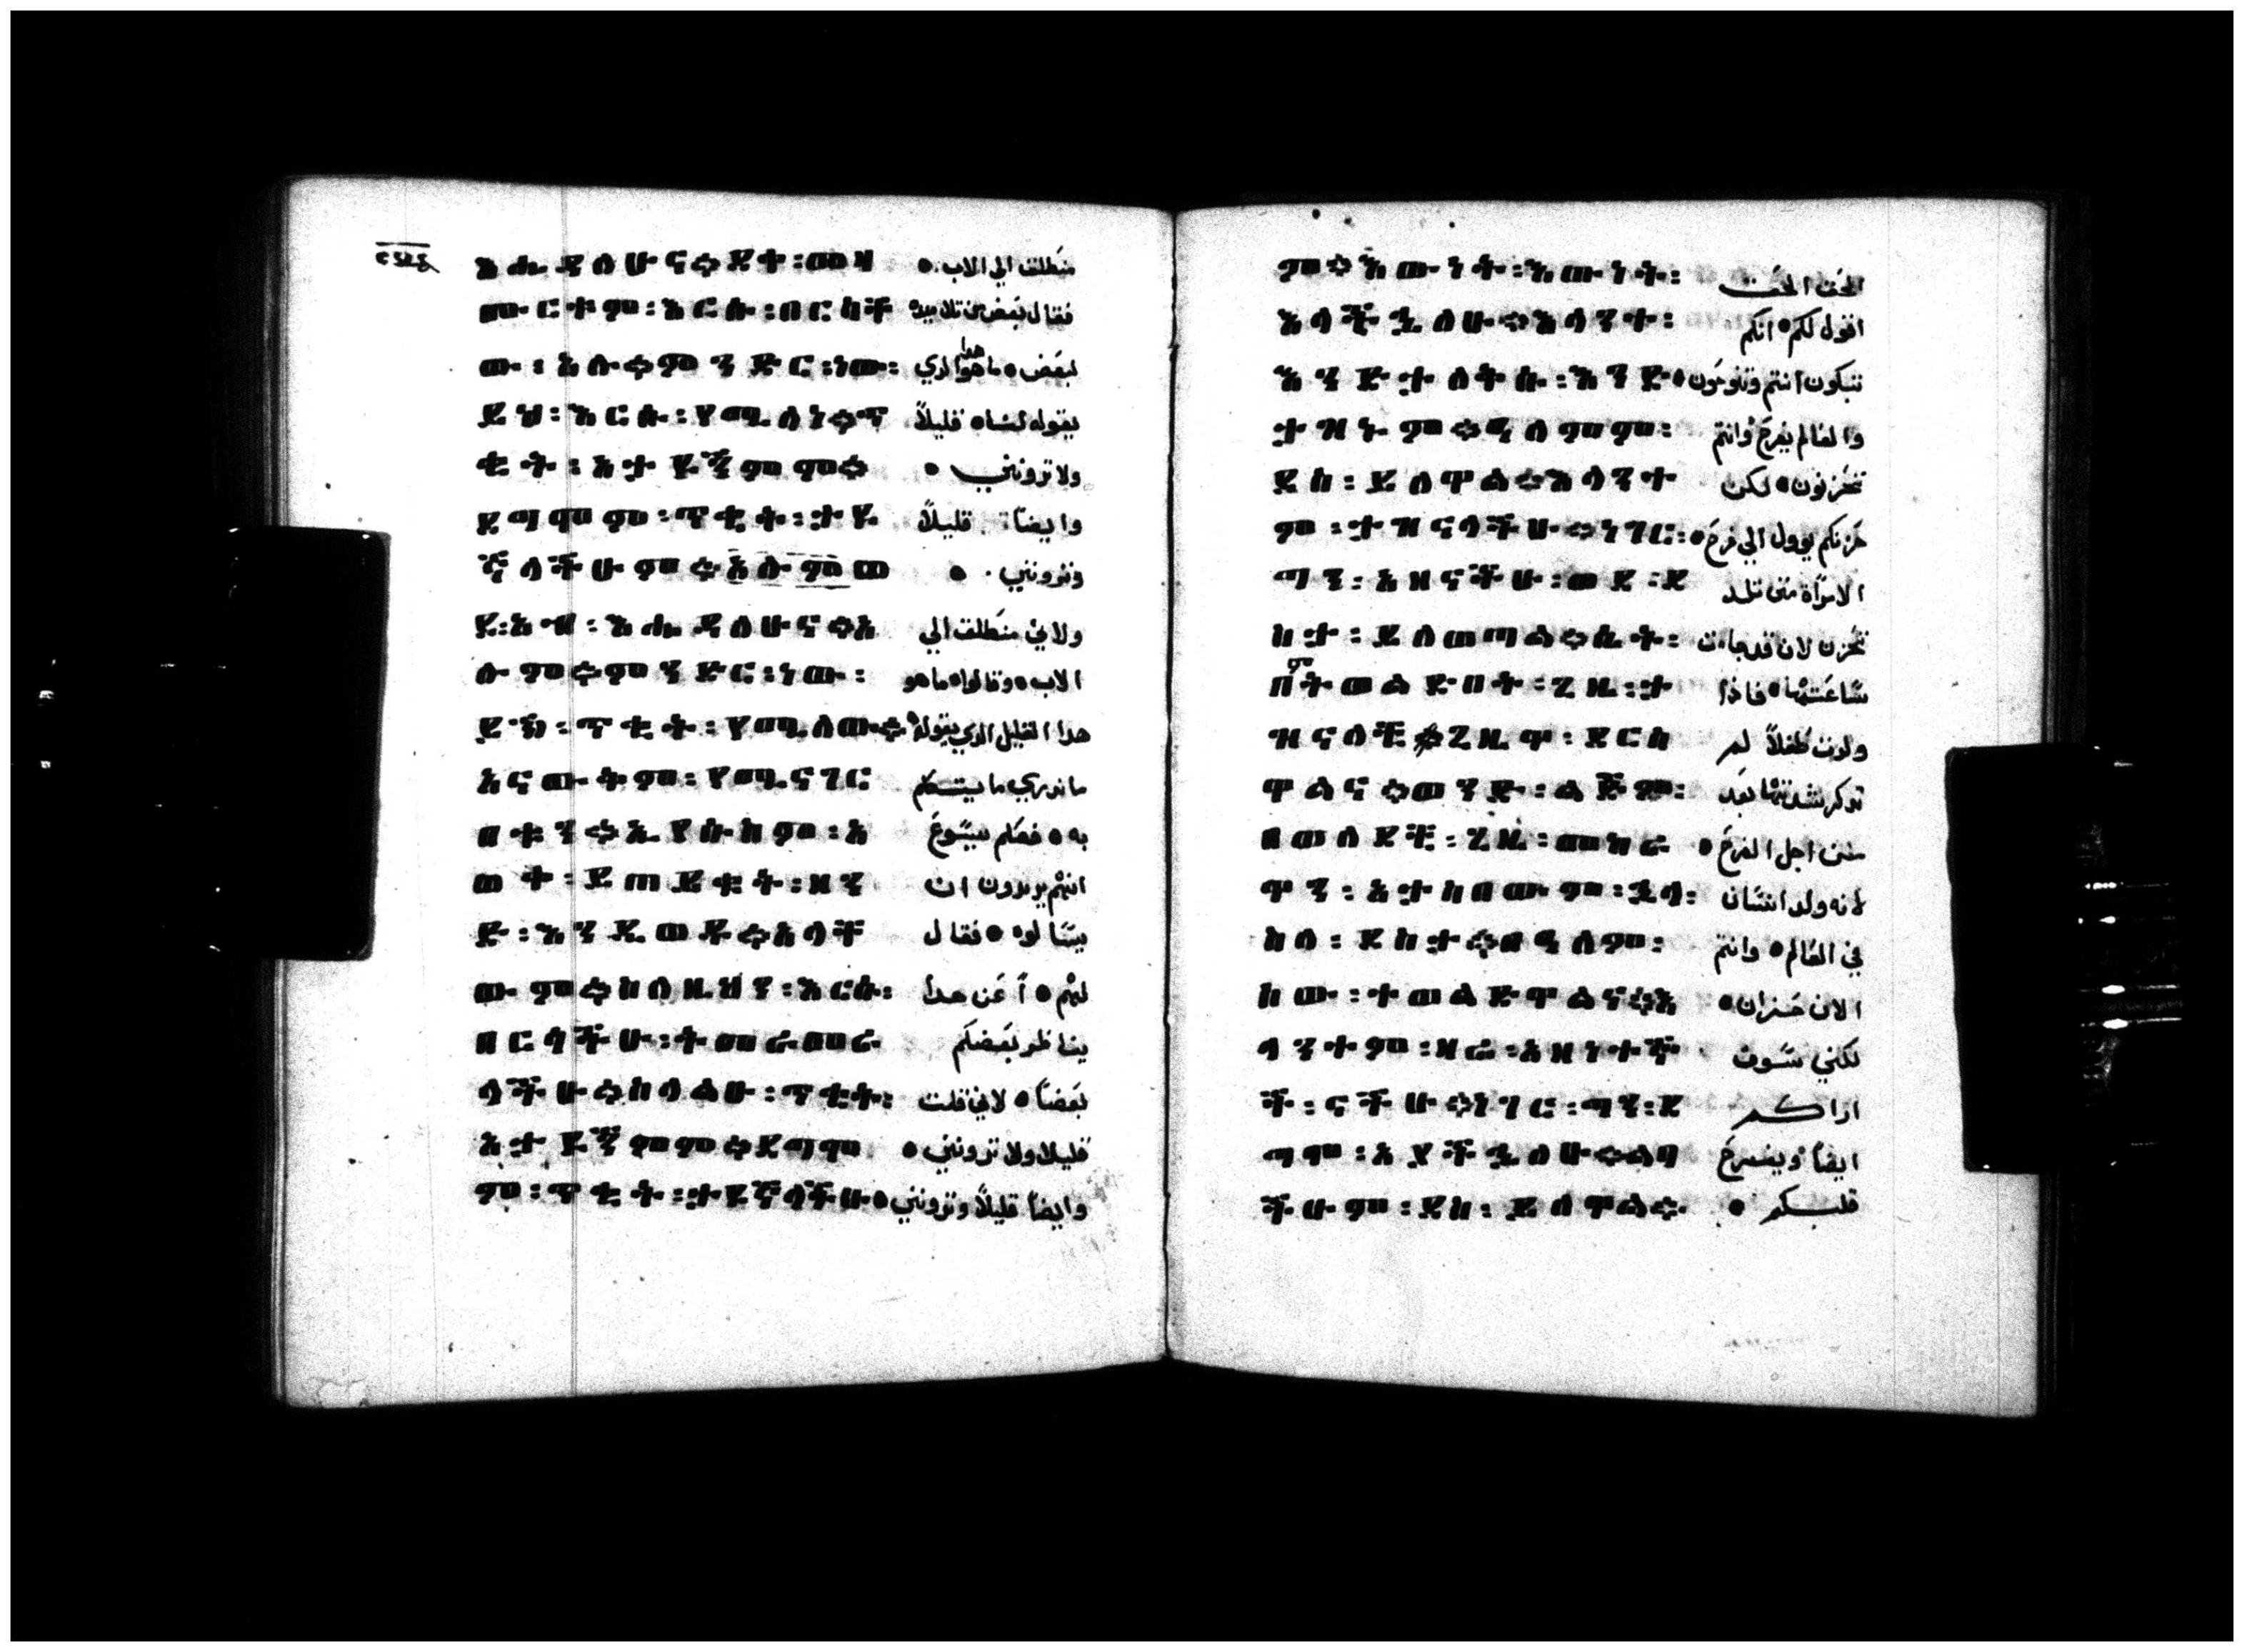 እሔዳለሁና። ደት፡መዛ منطلق الي الاب.
ሙርቱም፡ እርሱ፡ በርስት فقال بعض من تلاميده
ው፡ አሉ። ምንድር፡ ነው፡ لبعض ما هو هدا الدي
ይህ፡ እርሱ፡ የሚለነ። ጥ يقوله لنا قليلاً
ቂት፡ አታዩኝምም። ولا ترونني
ደግመም፡ ጥቂት፡ ታዩ وايضاً قليلاً
ኛላችሁም። እሉም ወ وترونني.
ደ፡አብ፡ እሔዳለሁና። አ ولاني منطلق الي
ሉም። ምንድር፡ ነው፡ الاب وقالوا ما هو
ይህ፡ ጥቂት፡ የሚለው። هدا القليل الدي يقوله
አናውቅም፡ የሚናገር ما ندري ما يتكلم
በትን። ኢየሱስም፡ አ به فعلم يسوع
ወቀ፡ ይጠይቁት፡ ዘን انهم يريدون ان
ድ፡ እንዲወዱ። አላቸ يسالوه فقال
ውም። ስለዚህን፡ እርሱ፡ لهم أعن هدا
በርሳችሁ፡ ትመራመራ يناظر بعضكم
ላችሁ። ስላልሁ፡ ጥቂት፡ بعضاً لاني قلت
አታዩኝምም። ደግመ قليلا ولا ترونني
ም፡ ጥቂት፡ ታዩኛላችሁ وايضاً قليلاً وترونني
ም። እውነት፡ እውነት፡ الحق الحق
እላችኋለሁ። እላንት፡ اقول لكم انكم
እንድታለቅሱ፡ እንድ تبكون انتم وتنوحون
ታዝኑም። ዓለምም፡ والعالم يفرح وانتم
ደስ፡ ይለዋል። እላንት تحزنون لكن
ም፡ ታዝናላችሁ። ነገር፡ حزنكم يوول الي فرح
ግን፡ አዘናችሁ፡ ወደ፡ ደ الامرأة متى تلد
ስታ፡ ይለወጣል። ሴት፡ تحزن لان قد جاءت
በትወልድበት፡ ጊዜ፡ ት ساعتها فاذا
ዝናለች። ጊዜዋ፡ ደርሰ ولدت طفلاً لم
ዋልና። ወንድ፡ ልጅም፡ تدكر شدتها بعد
በወለደች፡ ጊዜ፡ መከራ من اجل الفرح
ዋን፡ አታስበውም፡ ኋላ፡ لانه ولد انسان
ስለ፡ ደስታ። በዓለም፡ في العالم وانتم
ሰው፡ ተወልድዋልና። እ الان حزان
ላንትም፡ ዛሬ፡ አዘንተኞ لكني سوف
ች፡ ናችሁ። ነገር፡ ግን፡ ደ اراكم
ግም፡ አያችኋለሁ። ልባ ايضاً ويفرح
ችሁም፡ ደስ፡ ይለዋል። قلبكم